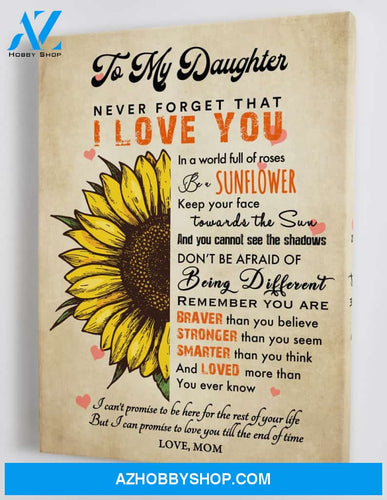 AZ
HOBBY SHOP
To My Daughter
NEVER FORGET THAT
I LOVE YOU
In a world full of roses
Be a SUNFLOWER
Keep your face
towards the Sun
And you cannot see the shadows
DON'T BE AFRAID OF
Being Different
REMEMBER YOU ARE
BRAVER than you believe
STRONGER than you seem
SMARTER than you think
And LOVED more than
You ever know
I can't promise to be here for the rest of your life
But I can promise to love you till the end of time
LOVE, MOM
AZHOBBYSHOP.COM